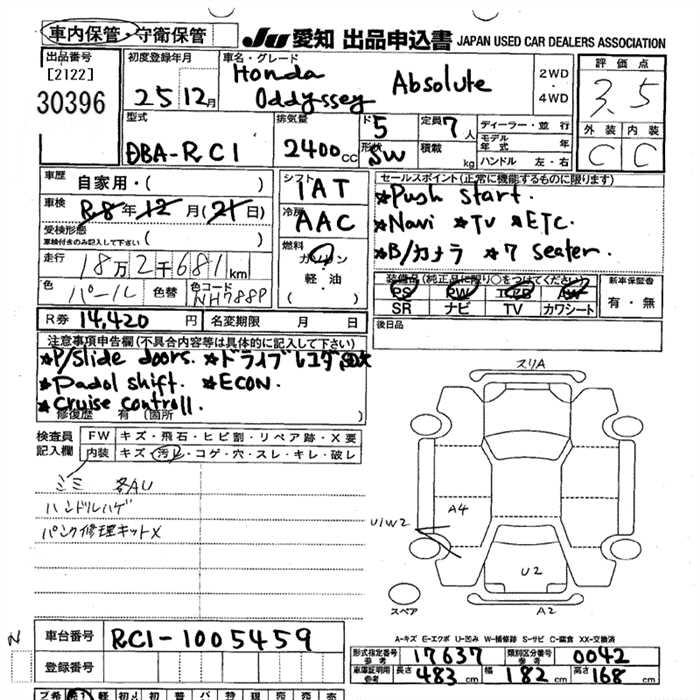 車内保管・守衛保管
JU 愛知 出品申込書 JAPAN USED CAR DEALERS ASSOCIATION
出品番号 [2122] 30396
初度登録年月 25 12月
車名・グレード Honda Oddyssey Absolute
2WD・4WD
評価点 3.5
外装 C 内装 C
型式 DBA-RC1
排気量 2400cc
ド 5 形状 SW
定員 7人 積載 kg
ディーラー・並行
モデル年式 年
ハンドル 左・右
車歴 自家用・( )
車検 R8年12月(21日)
受検形態 車検付きのみ記入して下さい ( )
走行 18万2千681km
色 パール 色替 色コード NH788P
シフト IAT
冷房 AAC
燃料 ガソリン 軽・油
セールスポイント(正常に機能するものに限ります)
*Push Start.
*Navi *TV *ETC.
*B/カメラ *7 Seater.
装備品(純正品に限り○をつけてください)
PS PW
SR ナビ TV カワシート
新車保証書 有・無
後日品
R券 14,420円 名変期限 月 日
注意事項申告欄(不具合内容等は具体的に記入して下さい)
*P/Slide doors. *ドライブレコ
*Padol shift. *ECON.
*Cruise controll.
修復歴 有(箇所 )
検査員記入欄
FW キズ・飛石・ヒビ割・リペア跡・X要
内装 キズ・汚レ・コゲ・穴・スレ・キレ・破レ
シミ 各AU
ハンドルハゲ
パンク修理キットX
スリA
A4
U1W2
U2
スペア
A2
A-キズ E-エクボ U-凹み W-補修跡 S-サビ C-腐食 XX-交換済
N
車台番号 RC1-1005459
登録番号
形式指定番号 参考 17637 類別区分番号 参考 0042
車庫証明用 参考 長さ 483cm 幅 182cm 高さ 168cm